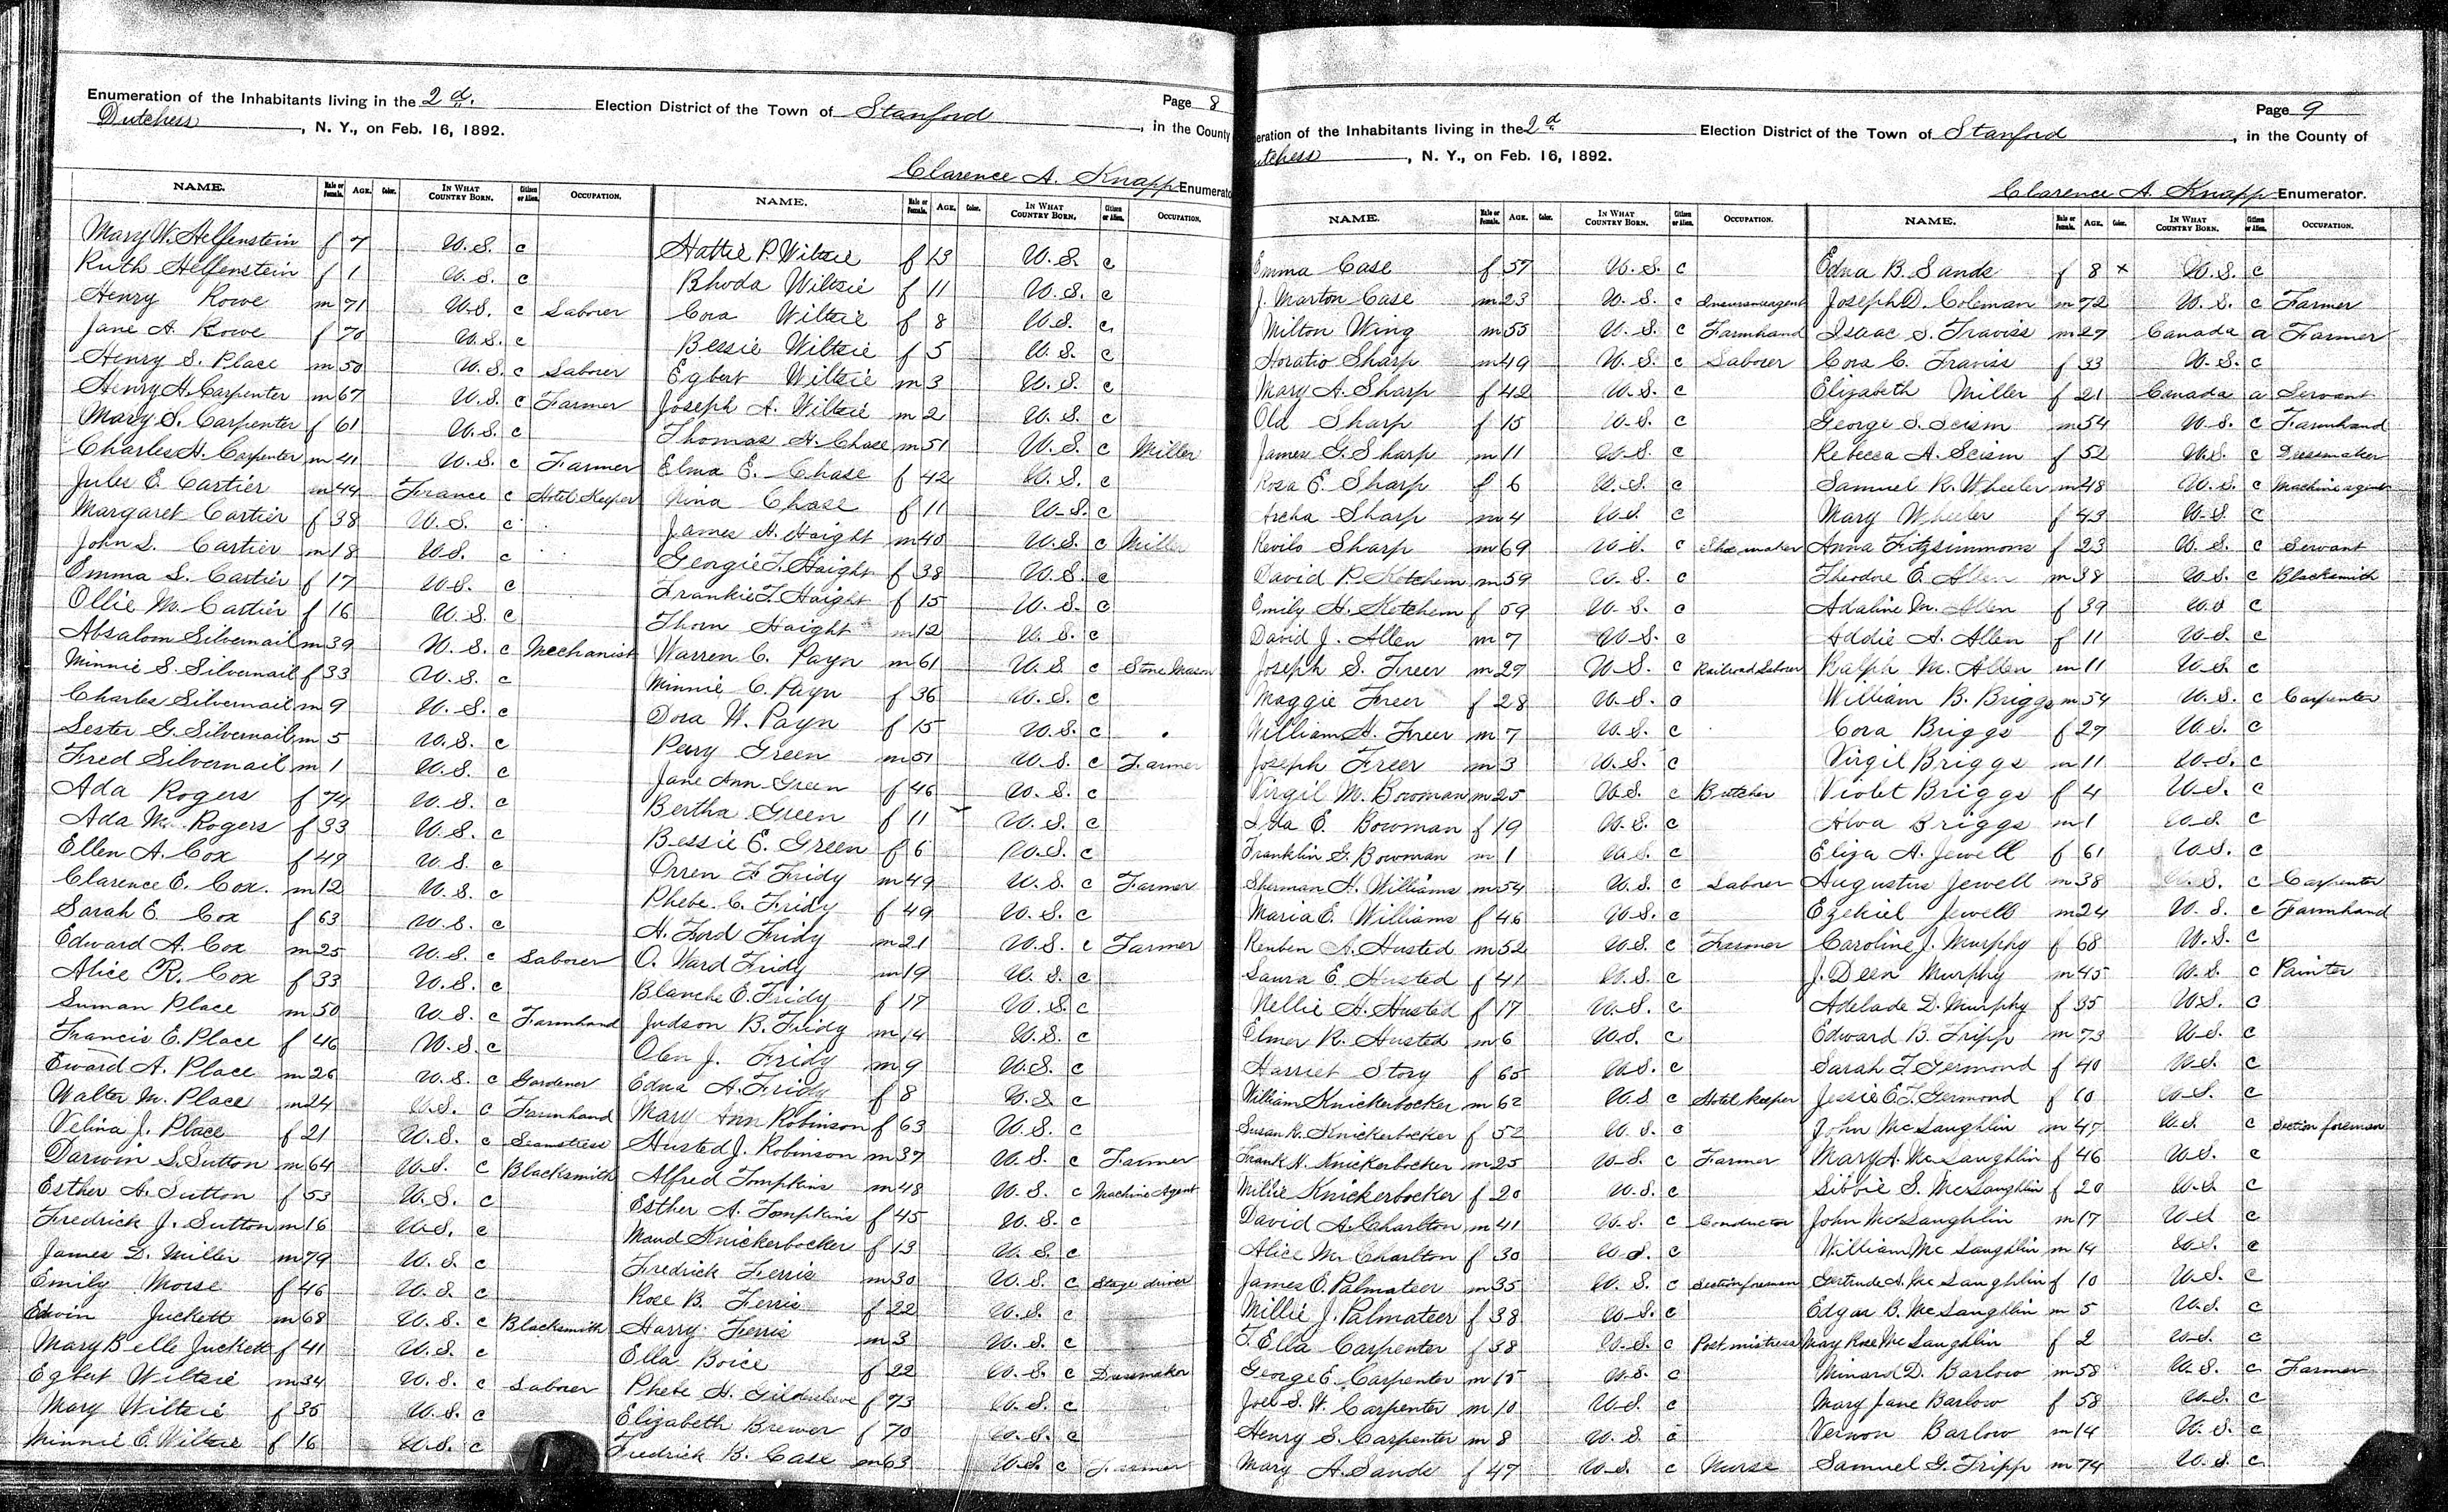 Page 8
Enumeration of the Inhabitants living in the 2d. Election District of the Town of Stanford, in the County
Dutchess, N. Y., on Feb. 16, 1892.
Clarence A. Knapp Enumerator
NAME. Male or Female. AGE. Color. IN WHAT COUNTRY BORN. Citizen or Alien. OCCUPATION.
Mary W. Helfenstein f 7 U.S. c
Ruth Helfenstein f 1 U.S. c
Henry Rowe m 71 U.S. c Laborer
Jane A. Rowe f 70 U.S. c
Henry S. Place m 50 U.S. c Laborer
Henry H. Carpenter m 67 U.S. c Farmer
Mary S. Carpenter f 61 U.S. c
Charles H. Carpenter m 41 U.S. c Farmer
Jules E. Cartier m 44 France c Hotel Keeper
Margaret Cartier f 38 U.S. c
John L. Cartier m 18 U.S. c
Emma L. Cartier f 17 U.S. c
Ollie M. Cartier f 16 U.S. c
Absalom Silvernail m 39 U.S. c Mechanist
Minnie S. Silvernail f 33 U.S. c
Charles Silvernail m 9 U.S. c
Lester G. Silvernail m 5 U.S. c
Fred Silvernail m 1 U.S. c
Ada Rogers f 74 U.S. c
Ada M. Rogers f 33 U.S. c
Ellen A. Cox f 49 U.S. c
Clarence E. Cox. m 12 U.S. c
Sarah E Cox f 63 U.S. c
Edward A. Cox m 25 U.S. c Laborer
Alice R. Cox f 33 U.S. c
Suman Place m 50 U.S. c Farmhand
Francis E. Place f 46 U.S. c
Eward A. Place m 26 U.S. c Gardener
Walter M. Place m 24 U.S. c Farmhand
Velina J. Place f 21 U.S. c Seamstress
Darwin S. Sutton m 64 U.S. c Blacksmith
Esther A. Sutton f 53 U.S. c
Fredrick J. Sutton m 16 U.S. c
James D. Miller m 79 U.S. c
Emily Morse f 46 U.S. c
Edwin Juckett m 68 U.S. c Blacksmith
Mary Belle Juckett f 41 U.S. c
Egbert Wiltsie m 34 U.S. c Laborer
Mary Wiltsie f 35 U.S. c
Minnie E. Wiltsie f 16 U.S. c
NAME. Male or Female. AGE. Color. IN WHAT COUNTRY BORN. Citizen or Alien. OCCUPATION.
Hattie P. Wiltsie f 13 U.S. c
Rhoda Wiltsie f 11 U.S. c
Cora Wiltsie f 8 U.S. c
Bessie Wiltsie f 5 U.S. c
Egbert Wiltsie m 3 U.S. c
Joseph A. Wiltsie m 2 U.S. c
Thomas H. Chase m 51 U.S. c Miller
Elma E. Chase f 42 U.S. c
Nina Chase f 11 U.S. c
James H. Haight m 40 U.S. c Miller
Georgie T. Haight f 38 U.S. c
Frankie T. Haight f 15 U.S. c
Thorn Haight m 12 U.S. c
Warren C. Payn m 61 U.S. c Stone Mason
Minnie C. Payn f 36 U.S. c
Dora W. Payn f 15 U.S. c
Perry Green m 51 U.S. c Farmer
Jane Ann Green f 46 U.S. c
Bertha Green f 11 U.S. c
Bessie E. Green f 6 U.S. c
Orren F Fridy m 49 U.S. c Farmer
Phebe C. Fridy f 49 U.S. c
H. Ford Fridy m 21 U.S. c Farmer
O. Ward Fridy m 19 U.S. c
Blanche E. Fridy f 17 U.S. c
Judson B. Fridy m 14 U.S. c
Olen J. Fridy m 9 U.S. c
Edna A. Fridy f 8 U.S. c
Mary Ann Robinson f 63 U.S. c
Husted J. Robinson m 37 U.S. c Farmer
Alfred Tompkins m 48 U.S. c Machine Agent
Esther A. Tompkins f 45 U.S. c
Maud Knickerbocker f 13 U.S. c
Fredrick Ferris m 30 U.S. c Stage driver
Rose B. Ferris f 22 U.S. c
Harry Ferris m 3 U.S. c
Ella Boice f 22 U.S. c Dressmaker
Phebe H. Gildersleeve f 73 U.S. c
Elizabeth Brewer f 70 U.S. c
Fredrick B. Case m 63 U.S. c Farmer
Page 9
eration of the Inhabitants living in the 2d Election District of the Town of Stanford, in the County of
utchess, N. Y., on Feb. 16, 1892.
Clarence A. Knapp Enumerator.
NAME. Male or Female. AGE. Color. IN WHAT COUNTRY BORN. Citizen or Alien. OCCUPATION.
Emma Case f 57 U.S. c
J. Marton Case m 23 U.S. c Insurance agent
Milton Wing m 55 U.S. c Farmhand
Horatio Sharp m 49 U.S. c Laborer
Mary A. Sharp f 42 U.S. c
Old Sharp f 15 U.S. c
James G. Sharp m 11 U.S. c
Rosa E. Sharp f 6 U.S. c
Archa Sharp m 4 U.S. c
Revilo Sharp m 69 U.S. c Shoemaker
David P. Ketchem m 59 U.S. c
Emily H. Ketchem f 59 U.S. c
David J. Allen m 7 U.S. c
Joseph S. Freer m 27 U.S. c Railroad Laborer
Maggie Freer f 28 U.S. c
William H. Freer m 7 U.S. c
Joseph Freer m 3 U.S. c
Virgil M. Bowman m 25 U.S. c Butcher
Ida E. Bowman f 19 U.S. c
Franklin G. Bowman m 1 U.S. c
Sherman H. Williams m 54 U.S. c Laborer
Maria E. Williams f 46 U.S. c
Reuben A. Husted m 52 U.S. c Farmer
Laura E. Husted f 41 U.S. c
Nellie H. Husted f 17 U.S. c
Elmer R. Husted m 6 U.S. c
Harriet Story f 65 U.S. c
William Knickerbocker m 62 U.S c Hotel keeper
Susan R. Knickerbocker f 52 U.S. c
Frank H. Knickerbocker m 25 U.S. c Farmer
Millie Knickerbocker f 20 U.S. c
David A. Charlton m 41 U.S. c Conductor
Alice M. Charlton f 30 U.S. c
James E. Palmateer m 35 U.S. c Section foreman
Millie J. Palmateer f 38 U.S. c
T. Ella Carpenter f 38 U.S. c Post mistress
George E. Carpenter m 15 U.S. c
Joel S. W. Carpenter m 10 U.S. c
Henry S. Carpenter m 8 U.S. c
Mary A. Sands f 47 U.S. c Nurse
NAME. Male or Female. AGE. Color. IN WHAT COUNTRY BORN. Citizen or Alien. OCCUPATION.
Edna B. Sands f 8 x U.S. c
Joseph D. Coleman m 72 U.S. c Farmer
Isaac S. Traviss m 27 Canada a Farmer
Cora C. Traviss f 33 U.S. c
Elizabeth Miller f 21 Canada a Servant
George S. Scism m 54 U.S. c Farmhand
Rebecca A. Scism f 52 U.S. c Dressmaker
Samuel R. Wheeler m 48 U.S. c Machine agent
Mary Wheeler f 43 U.S. c
Anna Fitzsimmons f 23 U.S. c Servant
Theodore E. Allen m 38 U.S. c Blacksmith
Adaline M. Allen f 39 U.S c
Addie A. Allen f 11 U.S. c
Ralph M. Allen m 11 U.S. c
William B. Briggs m 54 U.S. c Carpenter
Cora Briggs f 27 U.S. c
Virgil Briggs m 11 U.S. c
Violet Briggs f 4 U.S. c
Alva Briggs m 1 U.S. c
Eliza A. Jewell f 61 U.S. c
Augustus Jewell m 38 U.S. c Carpenter
Ezekiel Jewell m 24 U.S. c Farmhand
Caroline J. Murphy f 68 U.S. c
J. Deen Murphy m 45 U.S. c Painter
Adelade D. Murphy f 35 U.S. c
Edward B. Tripp m 73 U.S. c
Sarah T Germond f 40 U.S. c
Jessie E. T. Germond f 10 U.S. c
John McLaughlin m 47 U.S c Section foreman
Mary A. McLaughlin f 46 U.S. c
Libbie S. McLaughlin f 20 U.S. c
John McLaughlin m 17 U.S c
William McLaughlin m 14 U.S. c
Gertrude A. McLaughlin f 10 U.S. c
Edgar B. McLaughlin m 5 U.S. c
May Rose McLaughlin f 2 U.S. c
Minard D. Barlow m 58 U.S. c Farmer
Mary Jane Barlow f 58 U.S. c
Vernon Barlow m 14 U.S. c
Samuel G. Tripp m 74 U.S. c